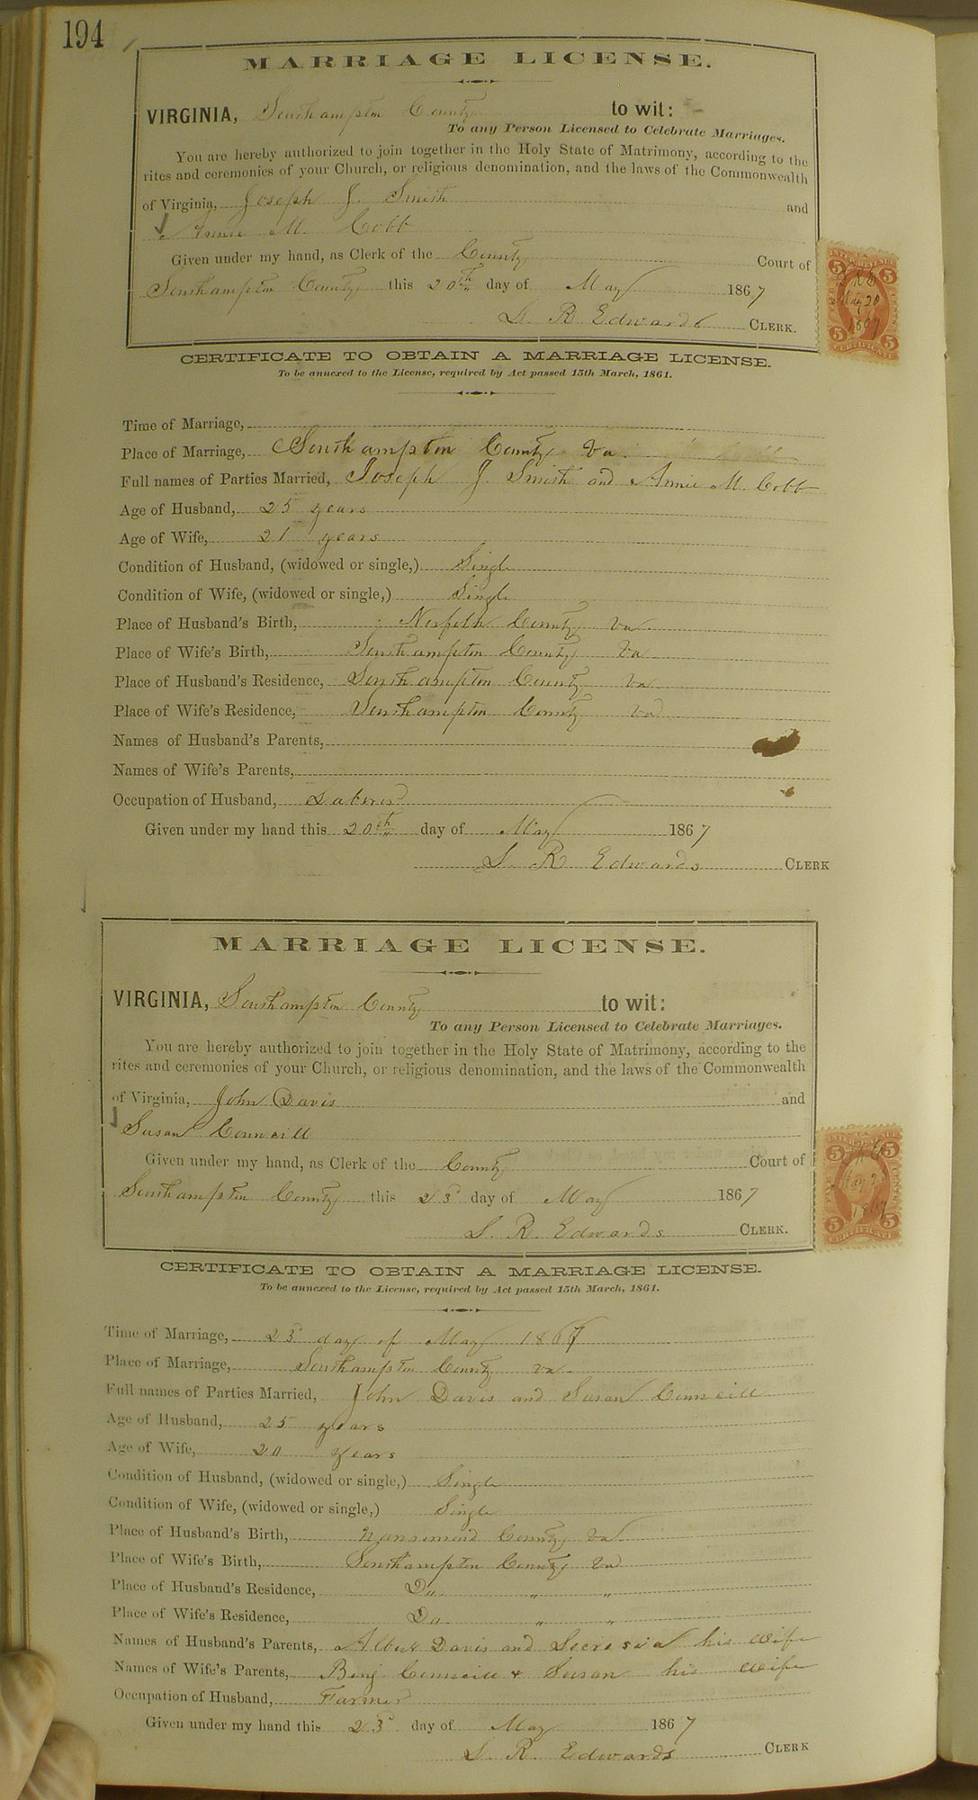 194
MARRIAGE LICENSE.
VIRGINIA, Southampton County to wit:
To any Person Licensed to Celebrate Marriages.
You are hereby authorized to join together in the Holy State of Matrimony, according to the
rites and ceremonies of your Church, or religious denomination, and the laws of the Commonwealth
of Virginia, Joseph J. Smith and
Annie M. Cobb
Given under my hand, as Clerk of the County Court of
Southampton County this 20th day of May 1867
L. R. Edwards CLERK.
CERTIFICATE TO OBTAIN A MARRIAGE LICENSE.
To be annexed to the License, required by Act passed 15th March, 1861.
Time of Marriage,
Place of Marriage, Southampton County Va.
Full names of Parties Married, Joseph J. Smith and Annie M. Cobb
Age of Husband, 25 years
Age of Wife, 21 years
Condition of Husband, (widowed or single,) Single
Condition of Wife, (widowed or single,) Single
Place of Husband's Birth, Norfolk County Va
Place of Wife's Birth, Southampton County Va
Place of Husband's Residence, Southampton County Va
Place of Wife's Residence, Southampton County Va
Names of Husband's Parents,
Names of Wife's Parents,
Occupation of Husband, Laborer
Given under my hand this 20th day of May 1867
L. R. Edwards CLERK
MARRIAGE LICENSE.
VIRGINIA, Southampton County to wit:
To any Person Licensed to Celebrate Marriages.
You are hereby authorized to join together in the Holy State of Matrimony, according to the
rites and ceremonies of your Church, or religious denomination, and the laws of the Commonwealth
of Virginia, John Davis and
Susan Councill
Given under my hand, as Clerk of the County Court of
Southampton County this 23d day of May 1867
L. R. Edwards CLERK.
CERTIFICATE TO OBTAIN A MARRIAGE LICENSE.
To be annexed to the License, required by Act passed 15th March, 1861.
Time of Marriage, 23d day of May 1867
Place of Marriage, Southampton County Va
Full names of Parties Married, John Davis and Susan Councill
Age of Husband, 25 years
Age of Wife, 20 years
Condition of Husband, (widowed or single,) Single
Condition of Wife, (widowed or single,) Single
Place of Husband's Birth, Nansemond County Va
Place of Wife's Birth, Southampton County Va
Place of Husband's Residence, Do " "
Place of Wife's Residence, Do " "
Names of Husband's Parents, Albert Davis and his wife
Names of Wife's Parents, Benj Councill & Susan his wife
Occupation of Husband, Farmer
Given under my hand this 23d day of May 1867
L. R. Edwards CLERK